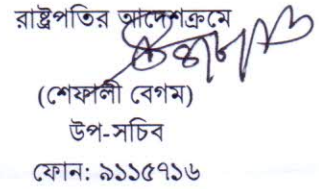 রাষ্ট্রপতির আদেশক্রমে
(শেফালী বেগম)
উপ-সচিব
ফোন: ৯১১৫৭১৬